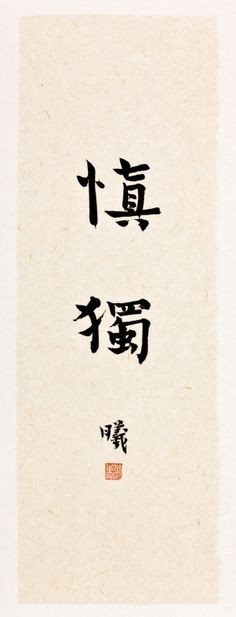 慎
獨
曦